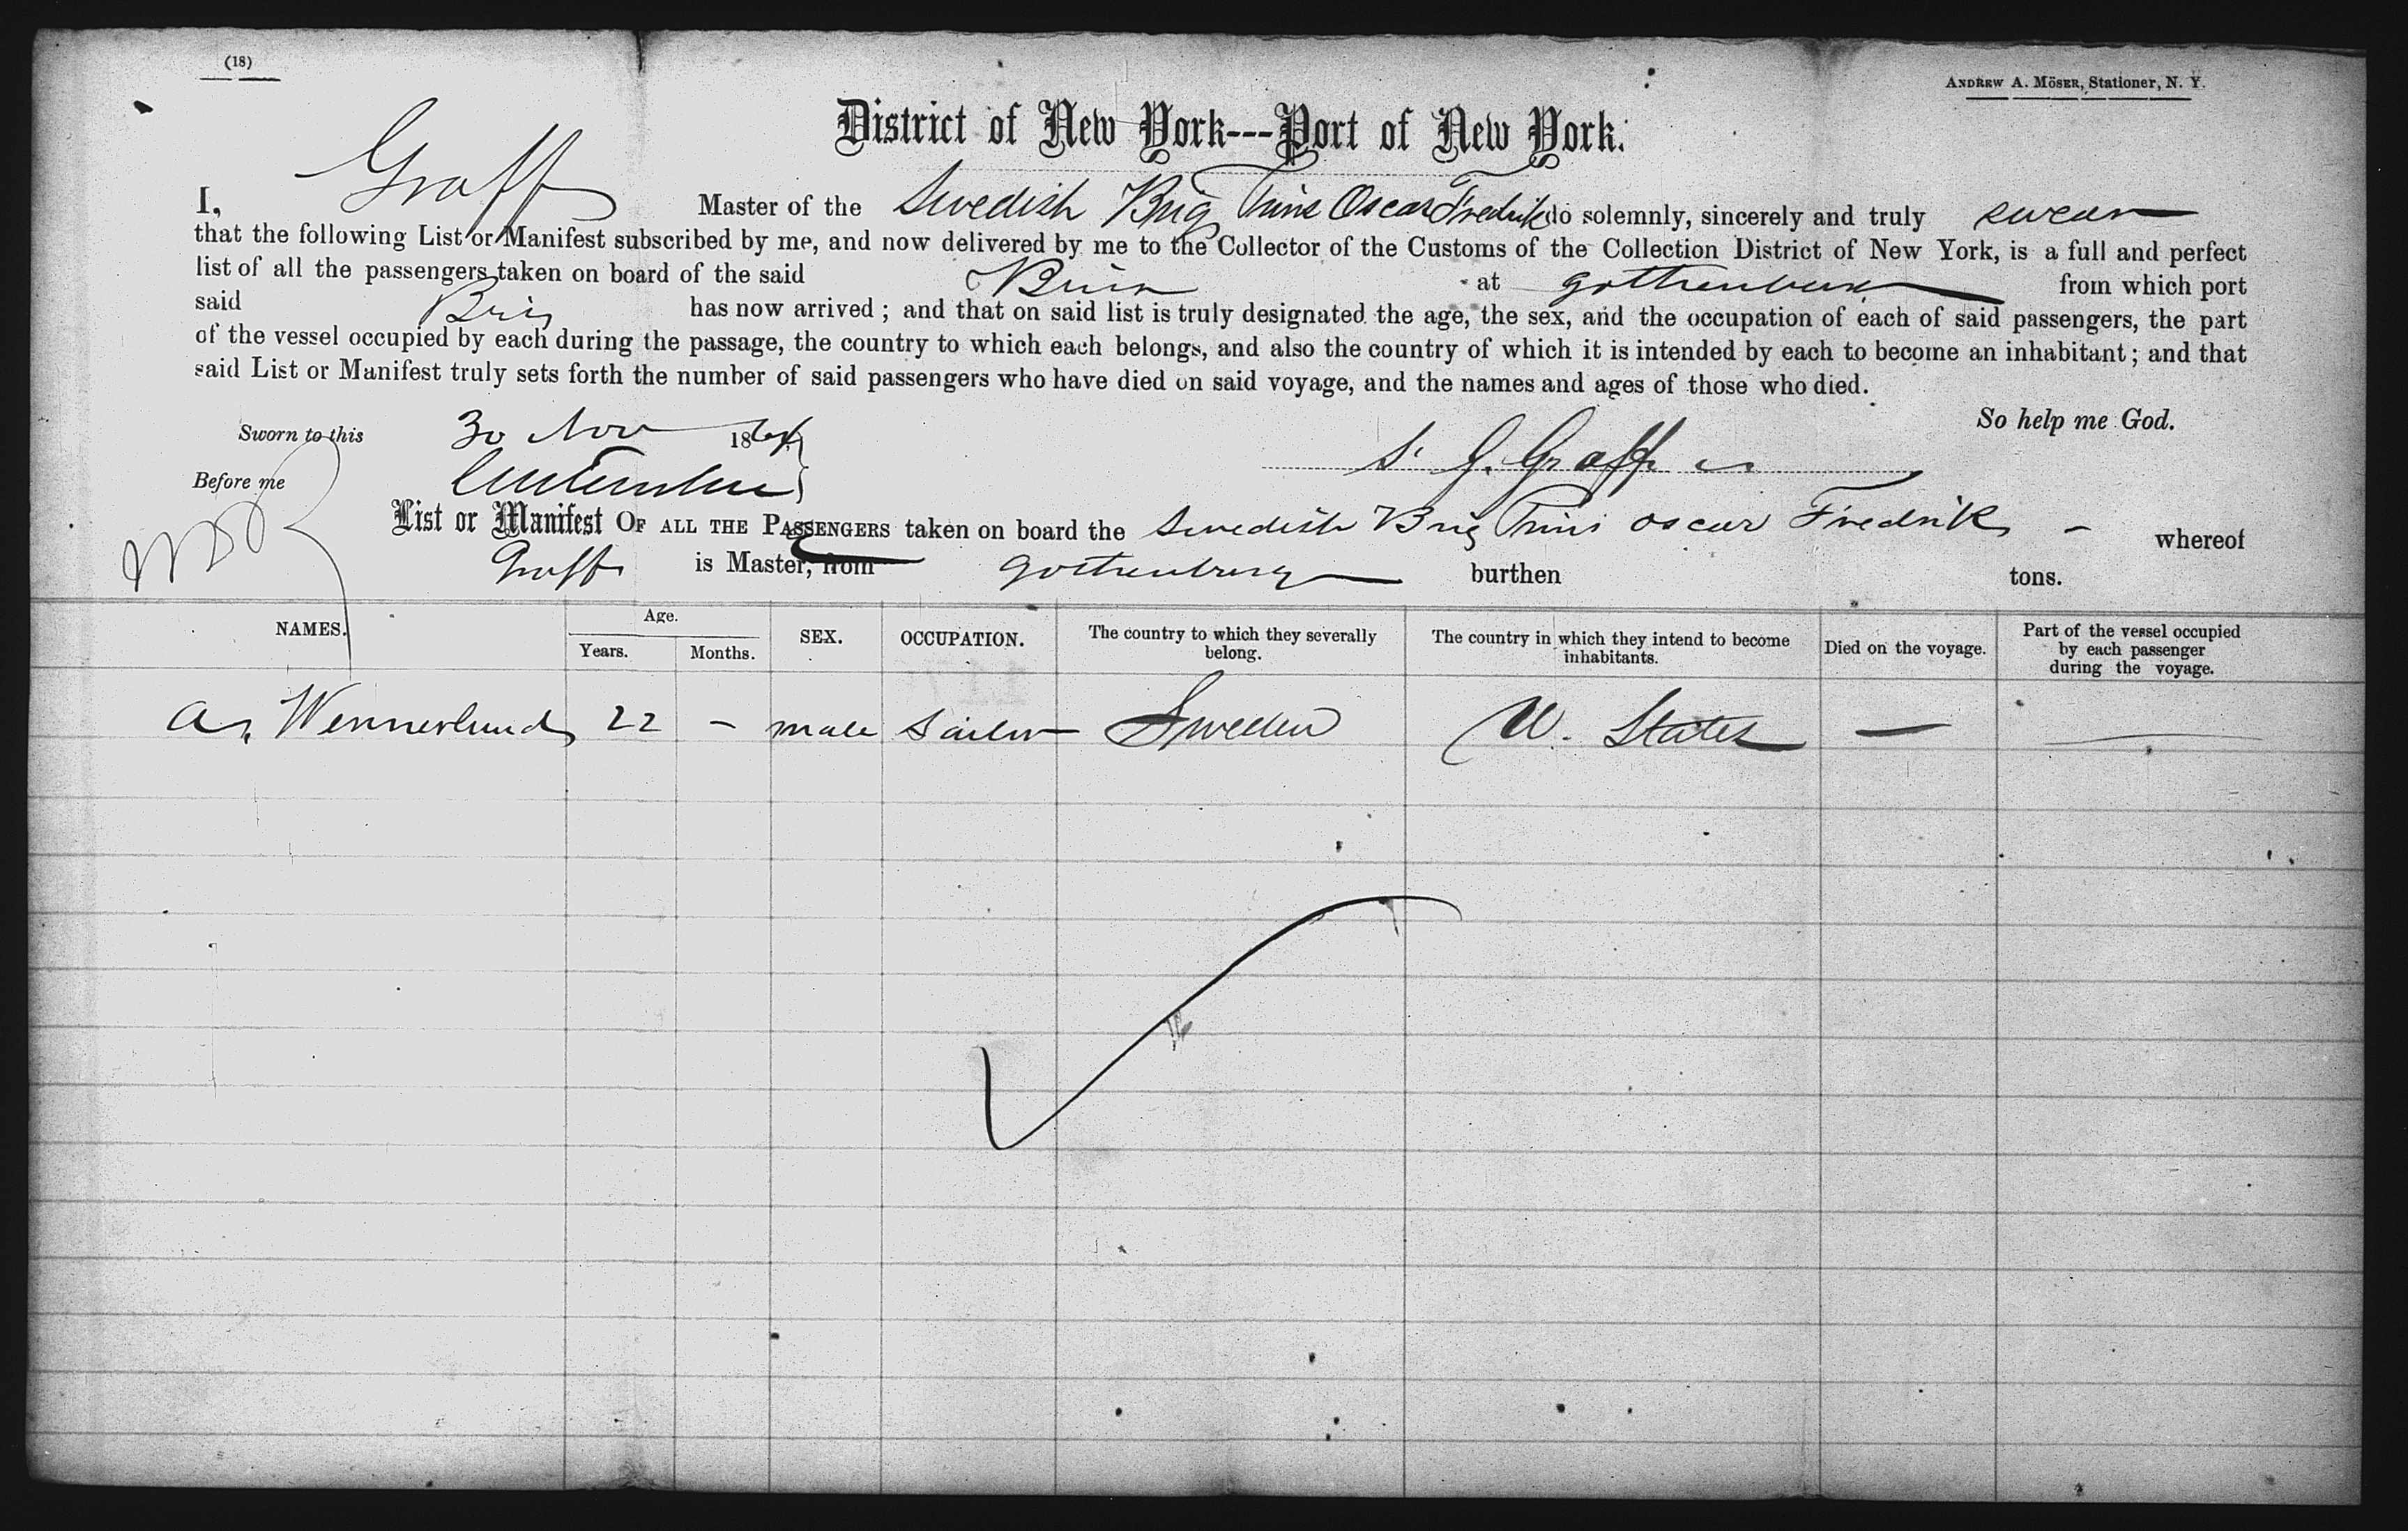 (18)
ANDREW A. MÖSER, Stationer, N. Y.
District of New York---Port of New York.
I, Graff Master of the Swedish Brig Prins Oscar Fredrik do solemnly, sincerely and truly swear
that the following List or Manifest subscribed by me, and now delivered by me to the Collector of the Customs of the Collection District of New York, is a full and perfect
list of all the passengers taken on board of the said Brig at Gothenburg from which port
said Brig has now arrived; and that on said list is truly designated the age, the sex, and the occupation of each of said passengers, the part
of the vessel occupied by each during the passage, the country to which each belongs, and also the country of which it is intended by each to become an inhabitant; and that
said List or Manifest truly sets forth the number of said passengers who have died on said voyage, and the names and ages of those who died.
So help me God.
Sworn to this 30 Nov 1864
Before me
S. G. Graff
List or Manifest OF ALL THE PASSENGERS taken on board the Swedish Brig Prins Oscar Fredrik - whereof
Graff is Master, from Gothenburg burthen tons.
NAMES. Age. Years. Months. SEX. OCCUPATION. The country to which they severally belong. The country in which they intend to become inhabitants. Died on the voyage. Part of the vessel occupied by each passenger during the voyage.
A. Wennerlund 22 - male Sailor Sweden U. States — —